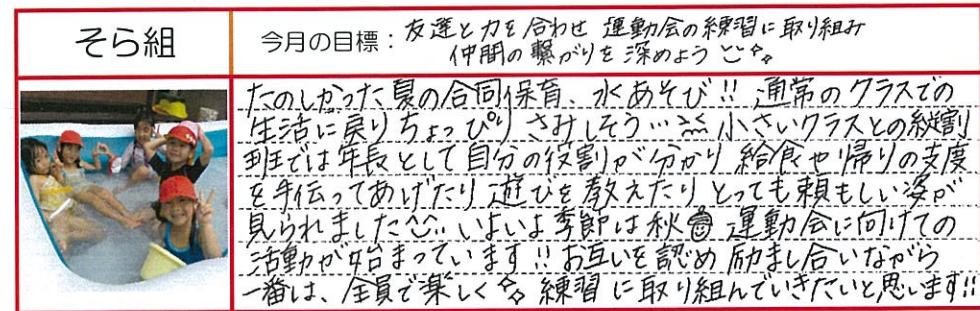 そら組
今月の目標：友達と力を合わせ 運動会の練習に取り組み
仲間の繋がりを深めよう
たのしかった夏の合同保育、水あそび!! 通常のクラスでの
生活に戻りちょっぴりさみしそう… 小さいクラスとの縦割
班では年長として自分の役割が分かり 給食や帰りの支度
を手伝ってあげたり遊びを教えたりとっても頼もしい姿が
見られました^^!! いよいよ季節は秋 運動会に向けての
活動が始まっています!! お互いを認め励まし合いながら
一番は、全員で楽しく 練習に取り組んでいきたいと思います!!